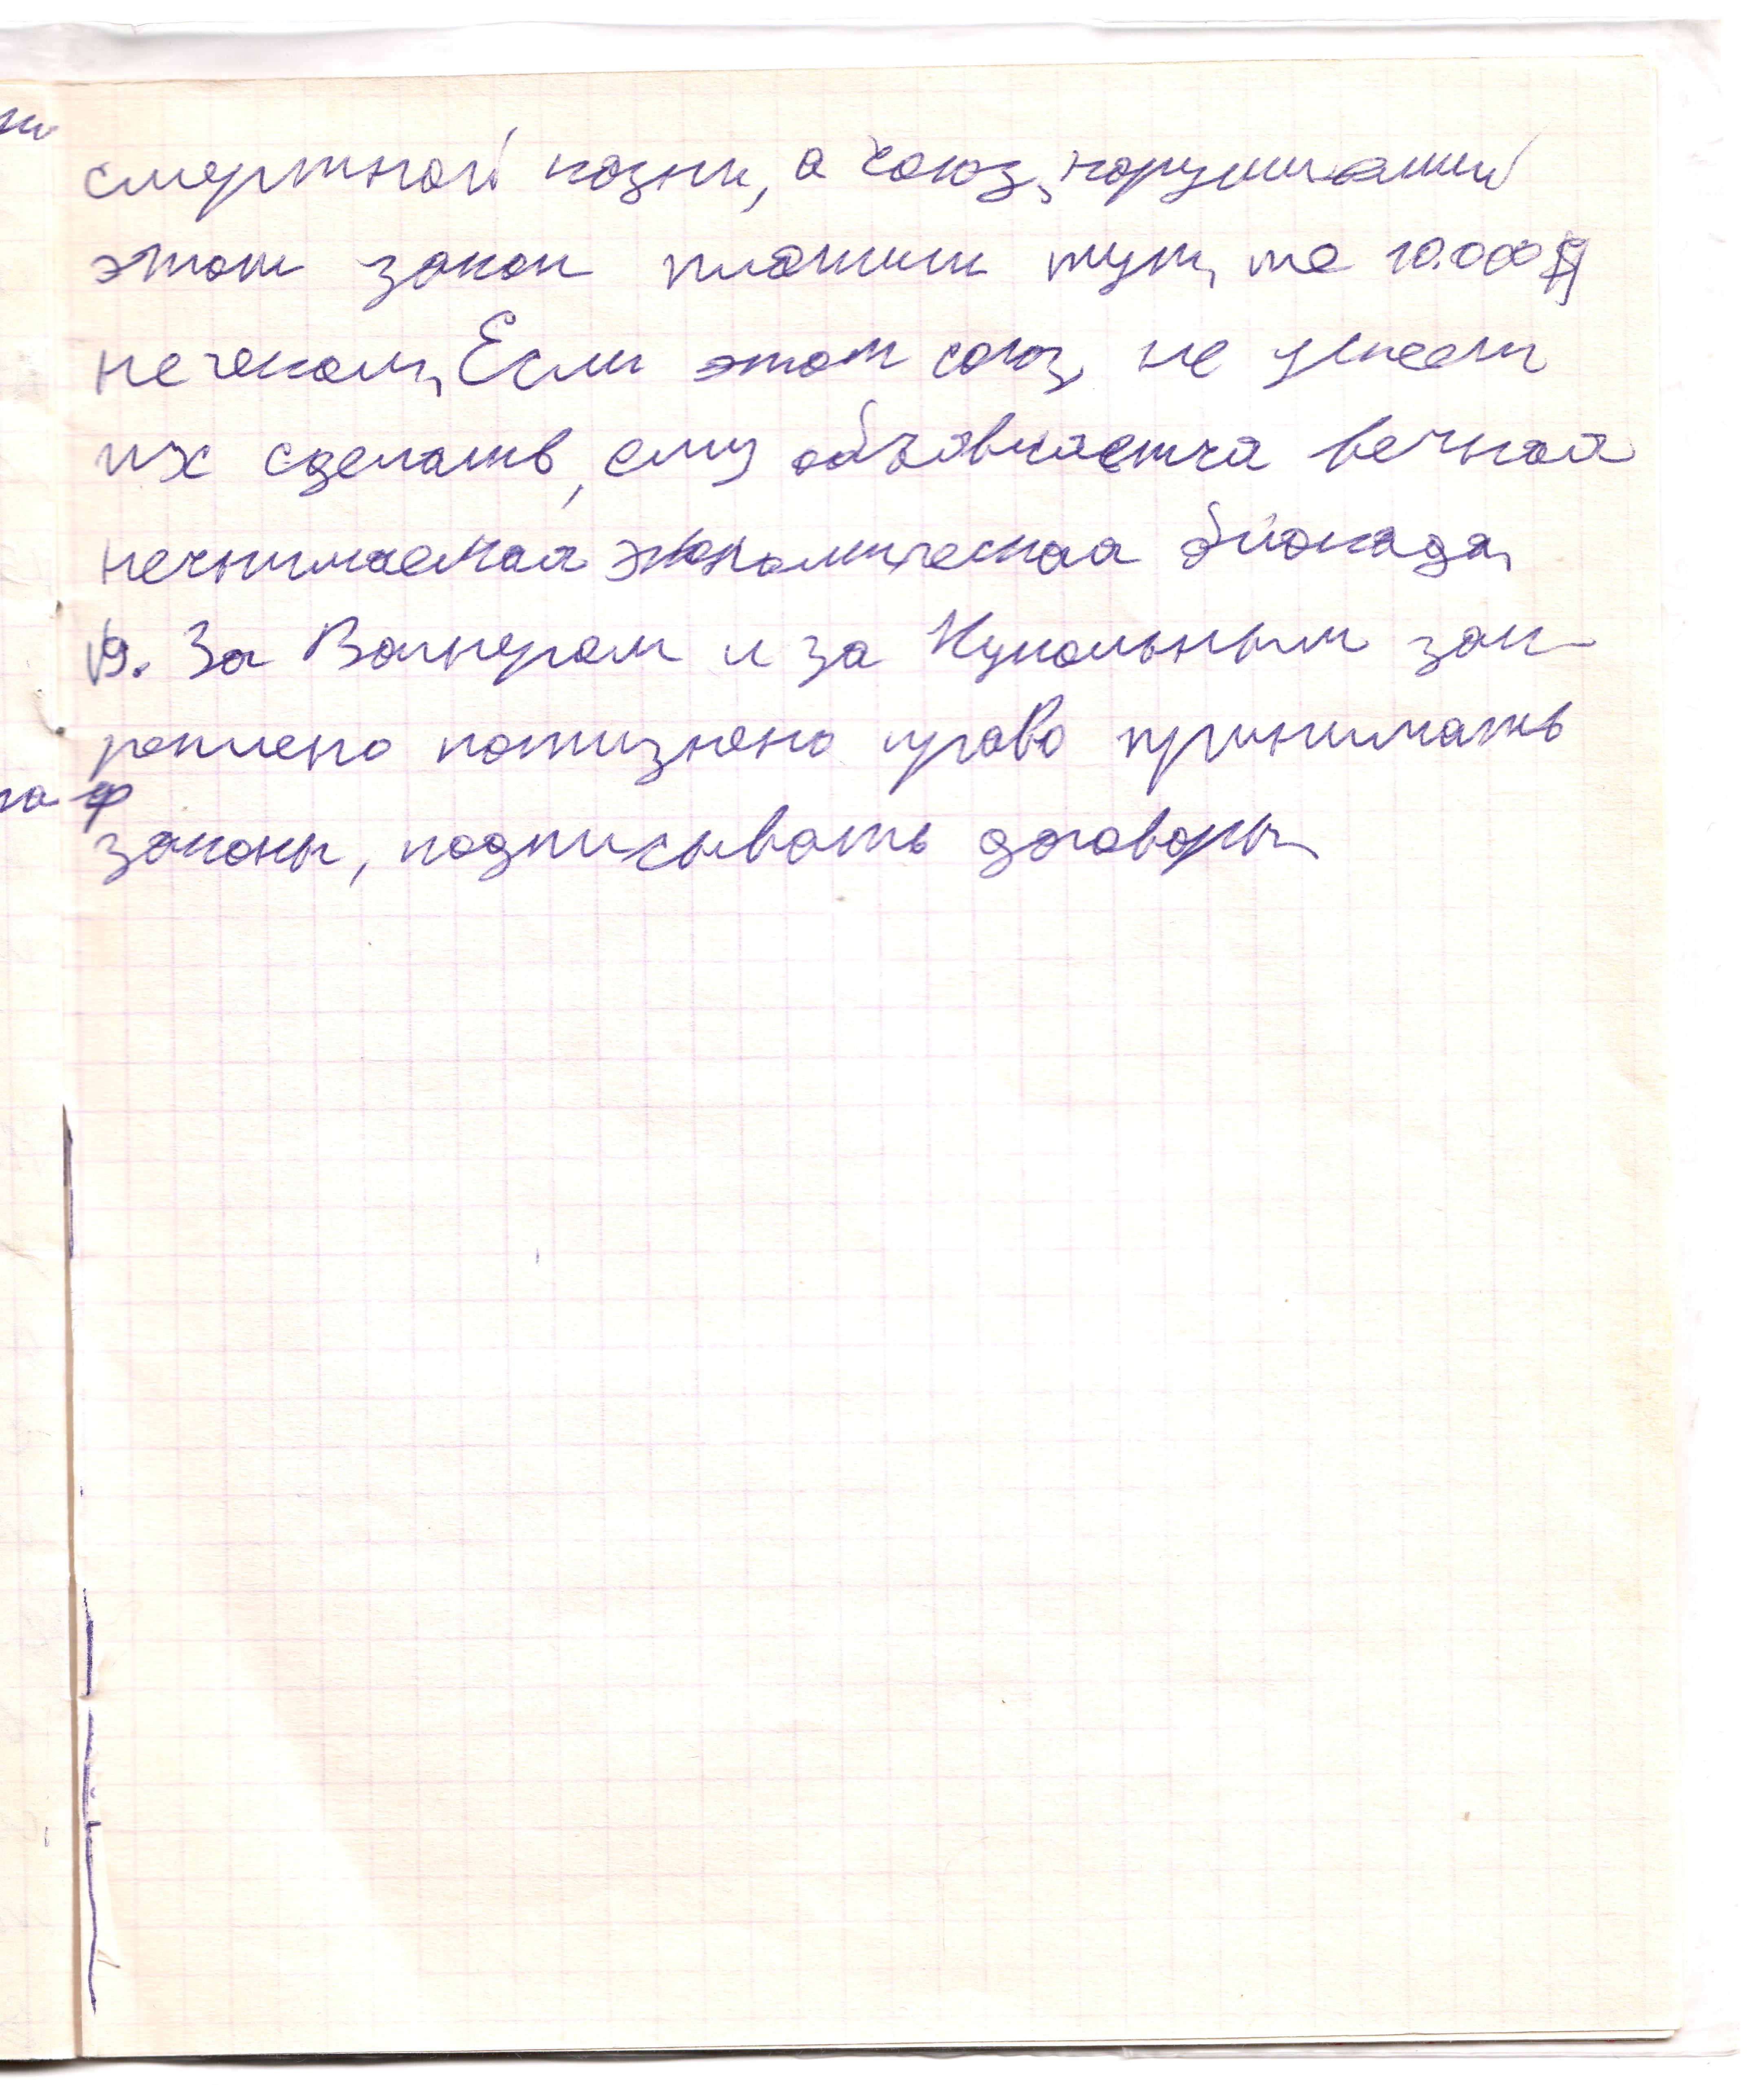 смертной казни, а союз, нарушивший
этот закон платит тут же 10.000
Если этот союз не успеет
их сделать, ему объявляется вечная
неснимаемая экономическая блокада.
19. За Вагнером и за Кукольным зак-
реплено пожизнено право принимать
законы, подписывать договоры.